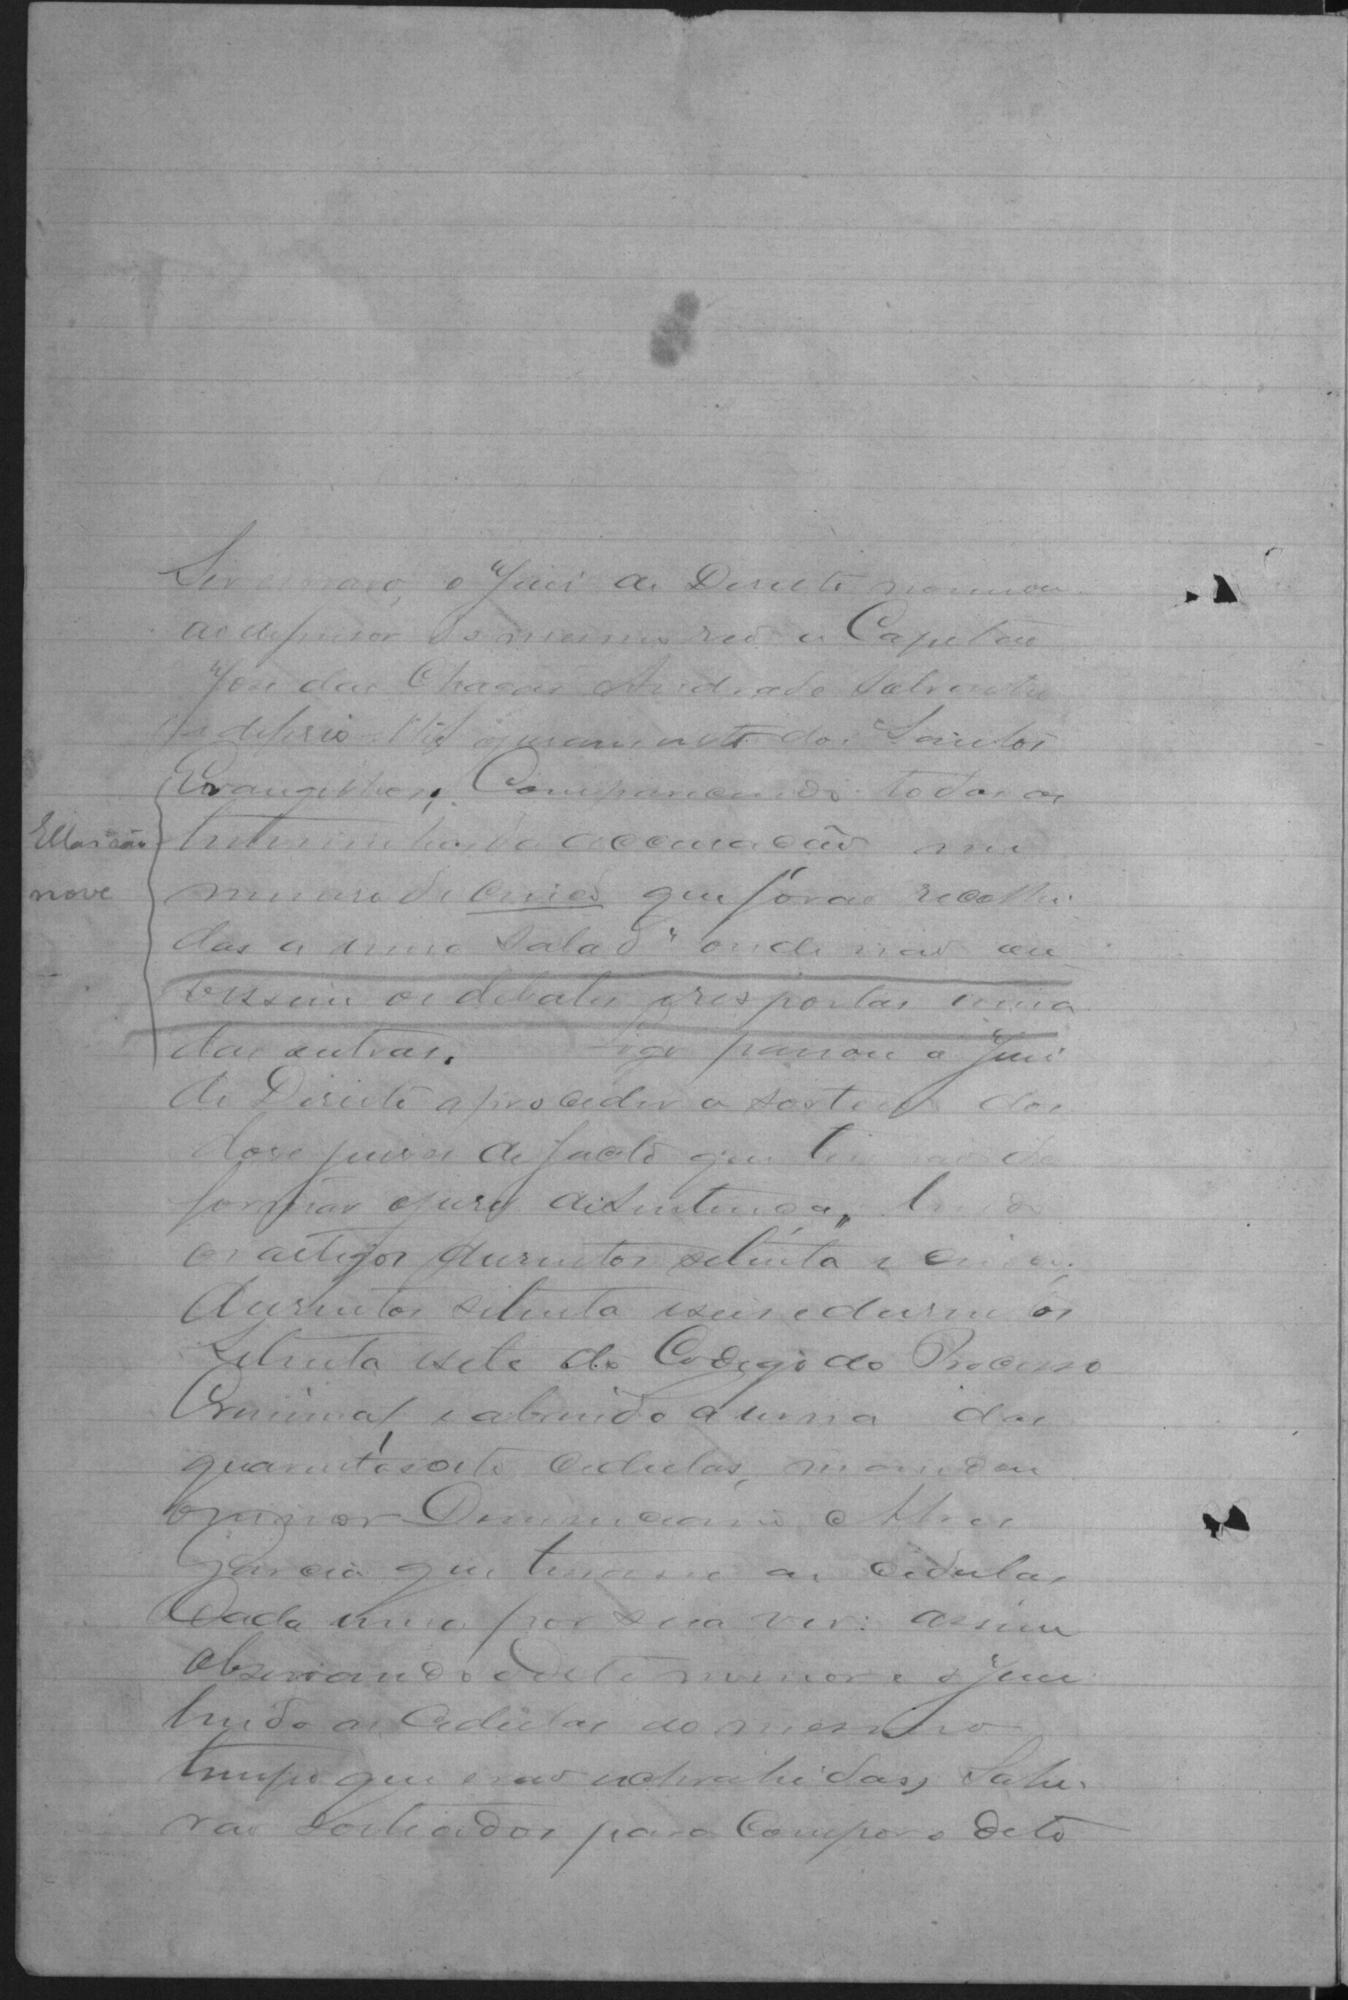 Ser escravo, o Juiz de Direito nomeou
ao defensor do mesmo reo o Capitão
José das Chagas Andrade Sobrinho
e deferio lhe o juramento dos Santos
Evangelhos; Comparecendo todas as
testemunhas da accusação em
Ellas são
nove
numero de cinco que forão recolhi-
das a uma Sala d'onde não ou
vissem os debates e respostas umas
das outras. Logo passou o Juiz
de Direito a proceder o sorteio dos
dose juises de facto que tinhão de
formar o jury de Sentença, lendo
os artigos dusentos setenta e cinco,
dusentos setenta e seis e dusentos
setenta e sete do Codigo do Processo
Criminal, e abrindo a urna das
quarenta e oito cedulas, mandou
o menor Domiciano Alves
Garcia que tirasse as cedulas
Cada uma por sua vez: assim
observando o dito menor e o Juiz
lendo as Cedulas ao mesmo
tempo que erão extrahidas, Sahi-
rão sorteados para Compor o dito